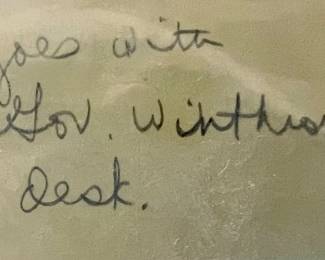 goes with
Gov. Winthro
Desk.